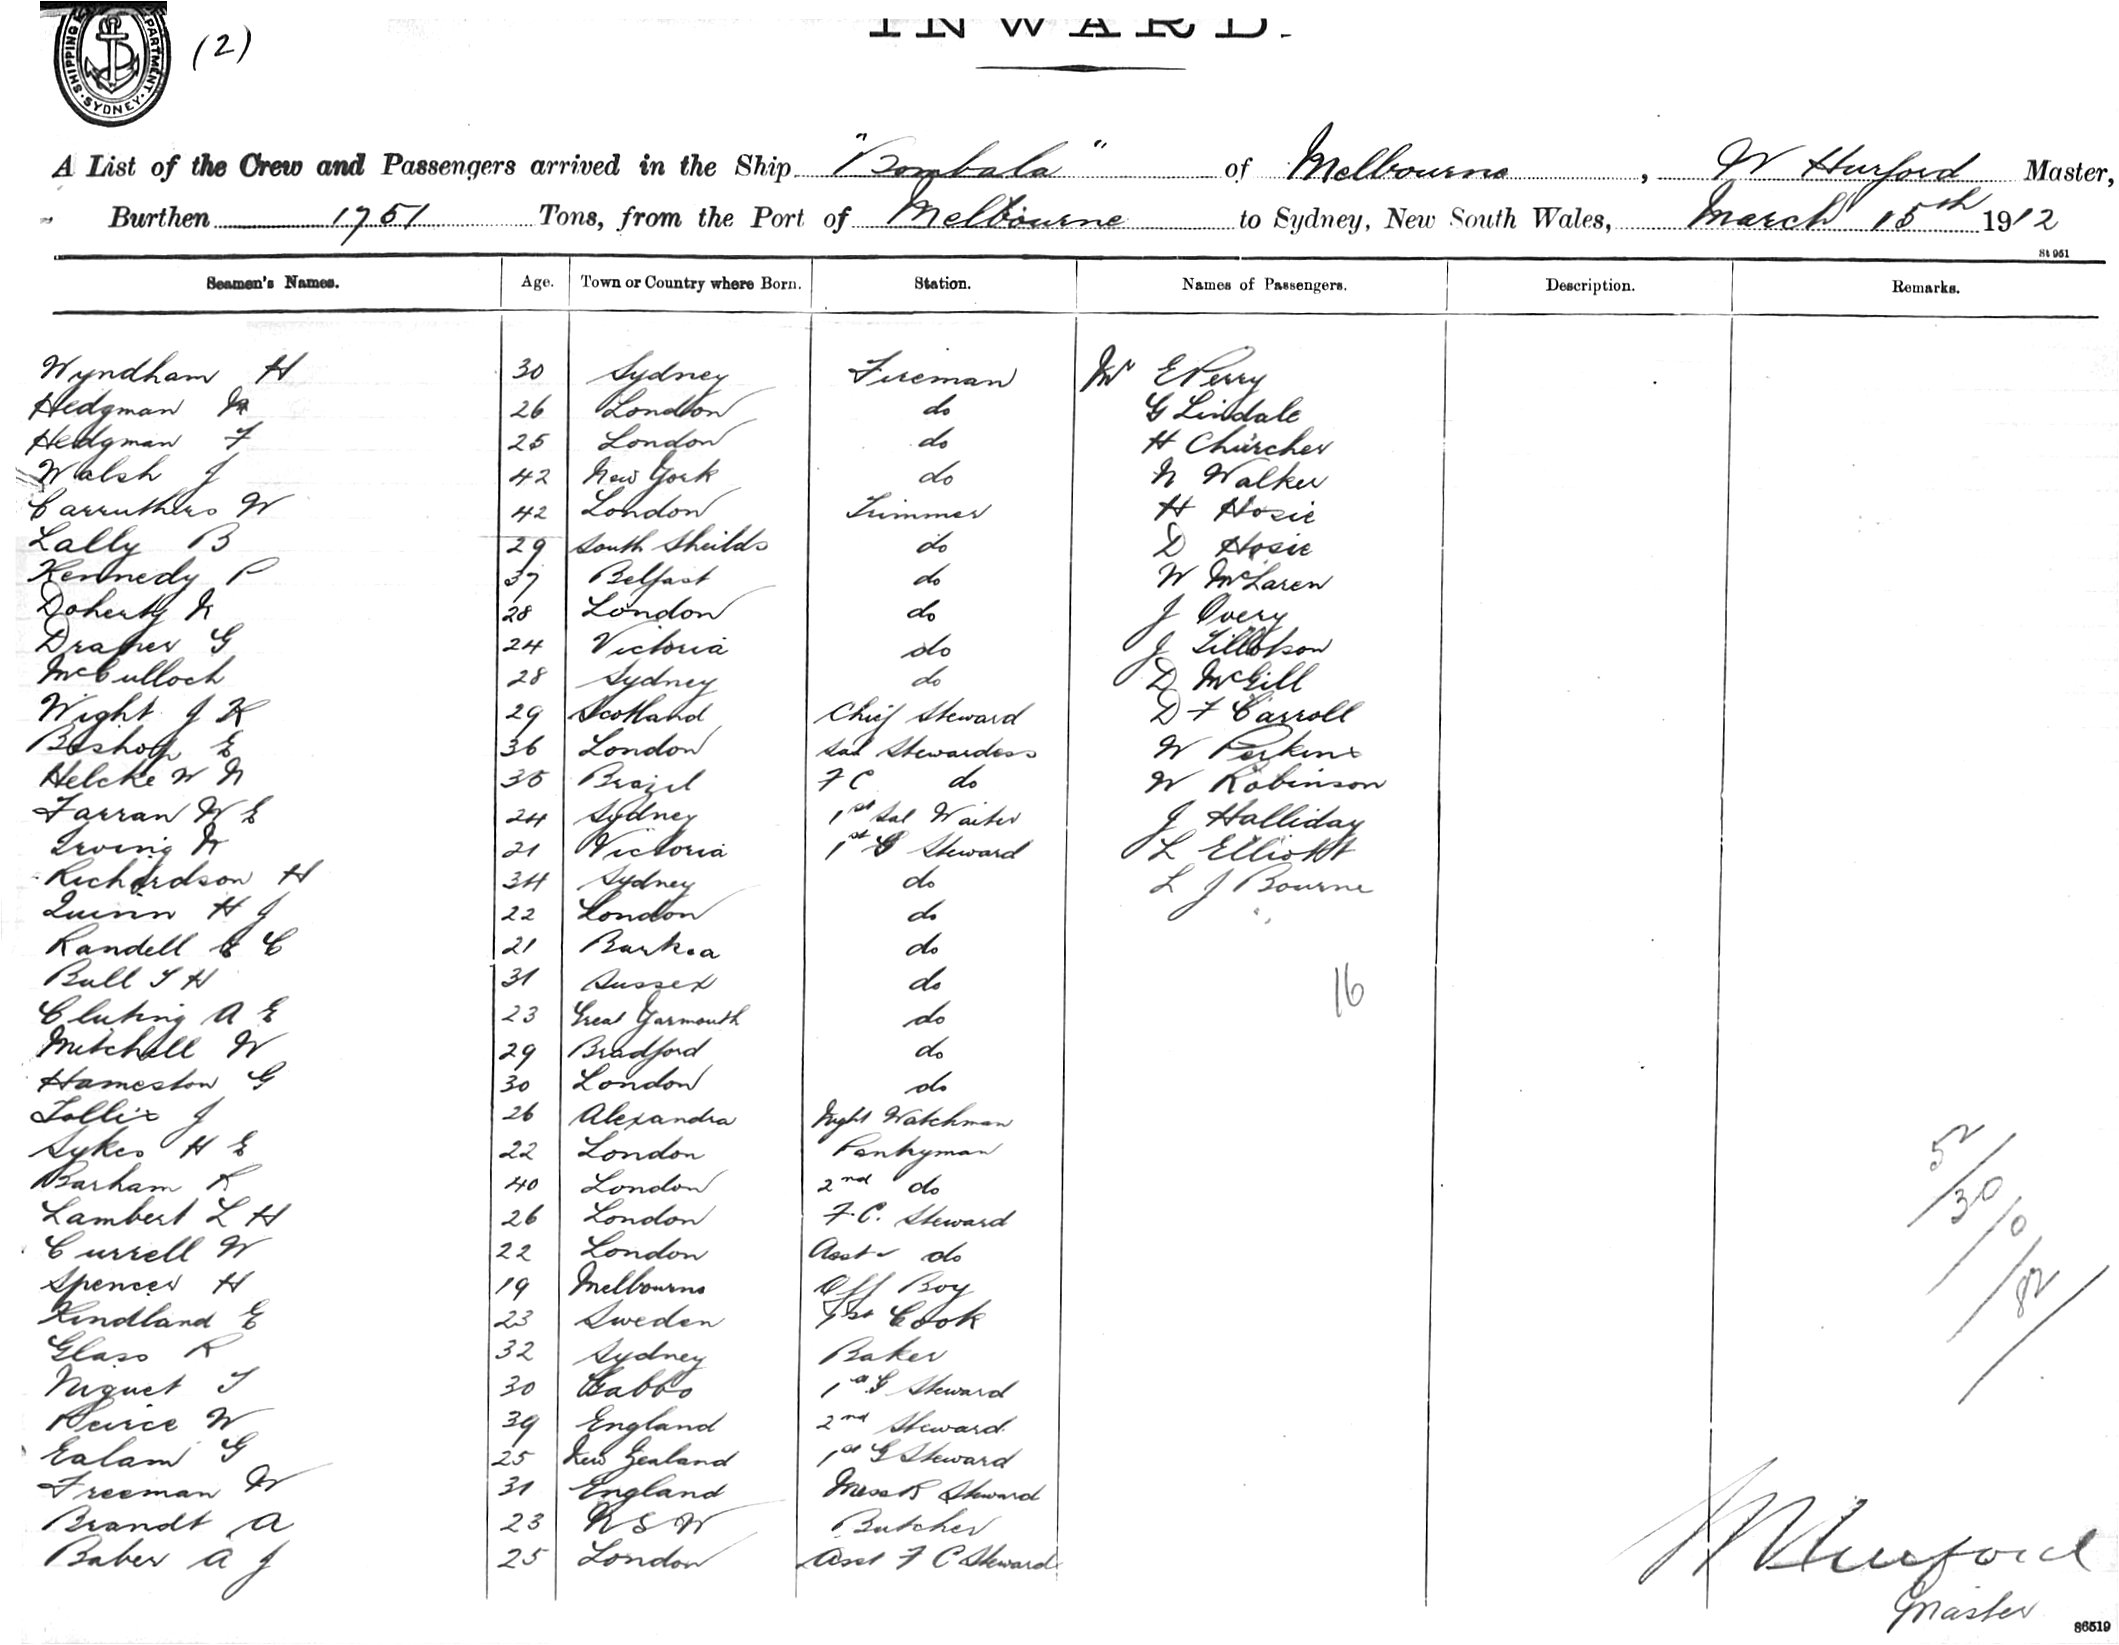 SHIPPING DEPARTMENT SYDNEY
(2)
INWARD.
A List of the Crew and Passengers arrived in the Ship "Bombala" of Melbourne, W Hurford Master,
Burthen 1751 Tons, from the Port of Melbourne to Sydney, New South Wales, March 15th 1912
St 951
Seamen's Names. Age. Town or Country where Born. Station. Names of Passengers. Description. Remarks.
Wyndham H 30 Sydney Fireman Mr E Perry
Hedgman 26 London do G Lindale
Hedgman F 25 London do H Churcher
Walsh J 42 New York do N Walker
Carruthers W 42 London Trimmer H Hosie
Lally B 29 South Sheilds do D Hosie
Kennedy P 37 Belfast do W McLaren
Doherty N 28 London do J Overy
Draper G 24 Victoria do J Tillotson
McCulloch 28 Sydney do D McGill
Wight J K 29 Scotland Chief Steward D F Carroll
Bishop E 36 London Sal Stewardess W Perkins
Helcke W N 35 Brazil F C do W Robinson
Farran W E 24 Sydney 1st Sal Waiter J Halliday
Irving N 21 Victoria 1st G Steward L Elliott
Richardson H 34 Sydney do L J Bourne
Quinn H J 22 London do
Randell E C 21 do
Bull T H 31 Sussex do
16
Cluting A E 23 Great Yarmouth do
Mitchell W 29 Bradford do
Hameston G 30 London do
Tollis J 26 Alexandra Night Watchman
Sykes H E 22 London Pantryman
Barham R 40 London 2nd do
Lambert L H 26 London F.C. Steward
Currell W 22 London Asst do
Spencer H 19 Melbourne Off Boy
Kindland E 23 Sweden 1st Cook
Glass R 32 Sydney Baker
Niquet T 30 1st G Steward
Peirce W 39 England 2nd Steward
Ealam G 25 New Zealand 1st G Steward
Freeman W 31 England Mess R Steward
Brandt A 23 N S W Butcher
Baber A J 25 London Asst F C Steward
52/30/0/82/
W Hurford
Master
86519